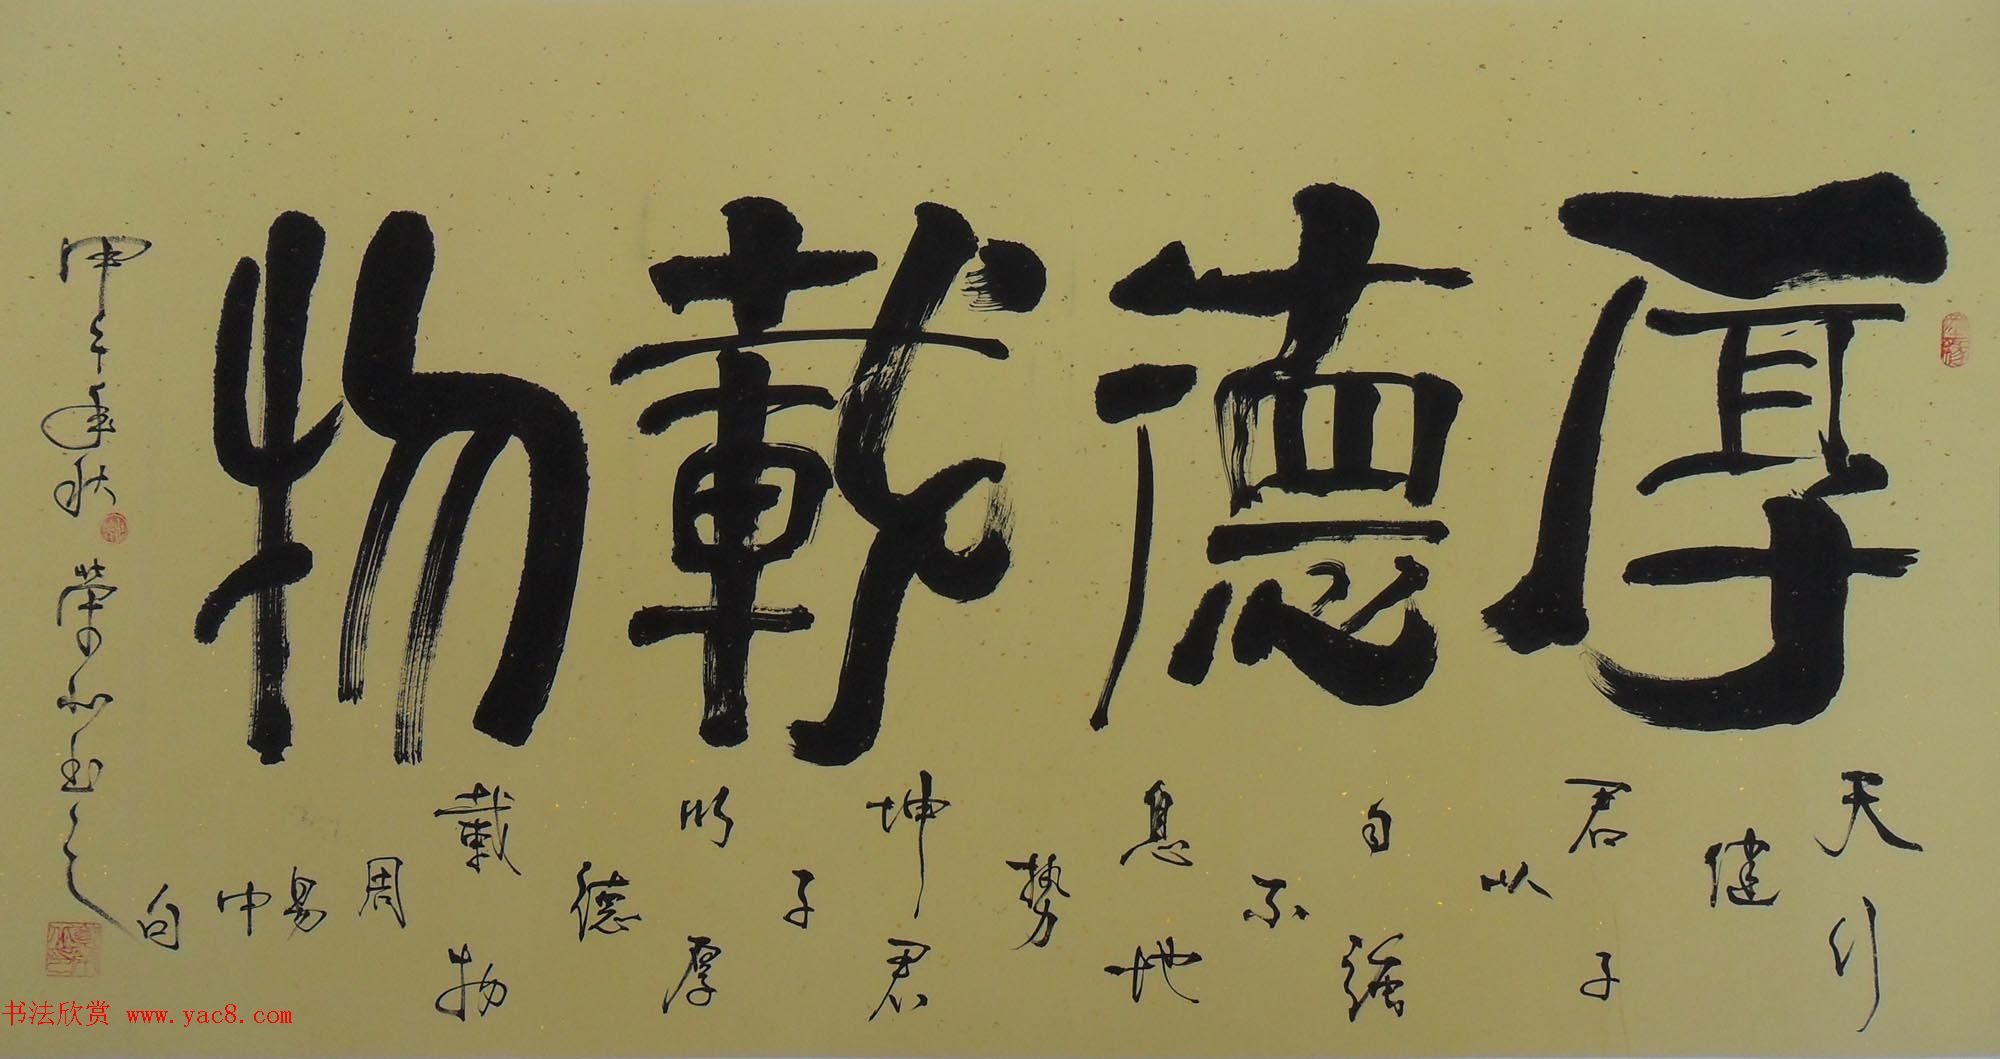 厚德載物
天行
健
君子
以
自強
不
息地
勢
坤君
子
以厚
德
載物
周
易
中
句
甲午年秋
榮
書法欣赏 www.yac8.com